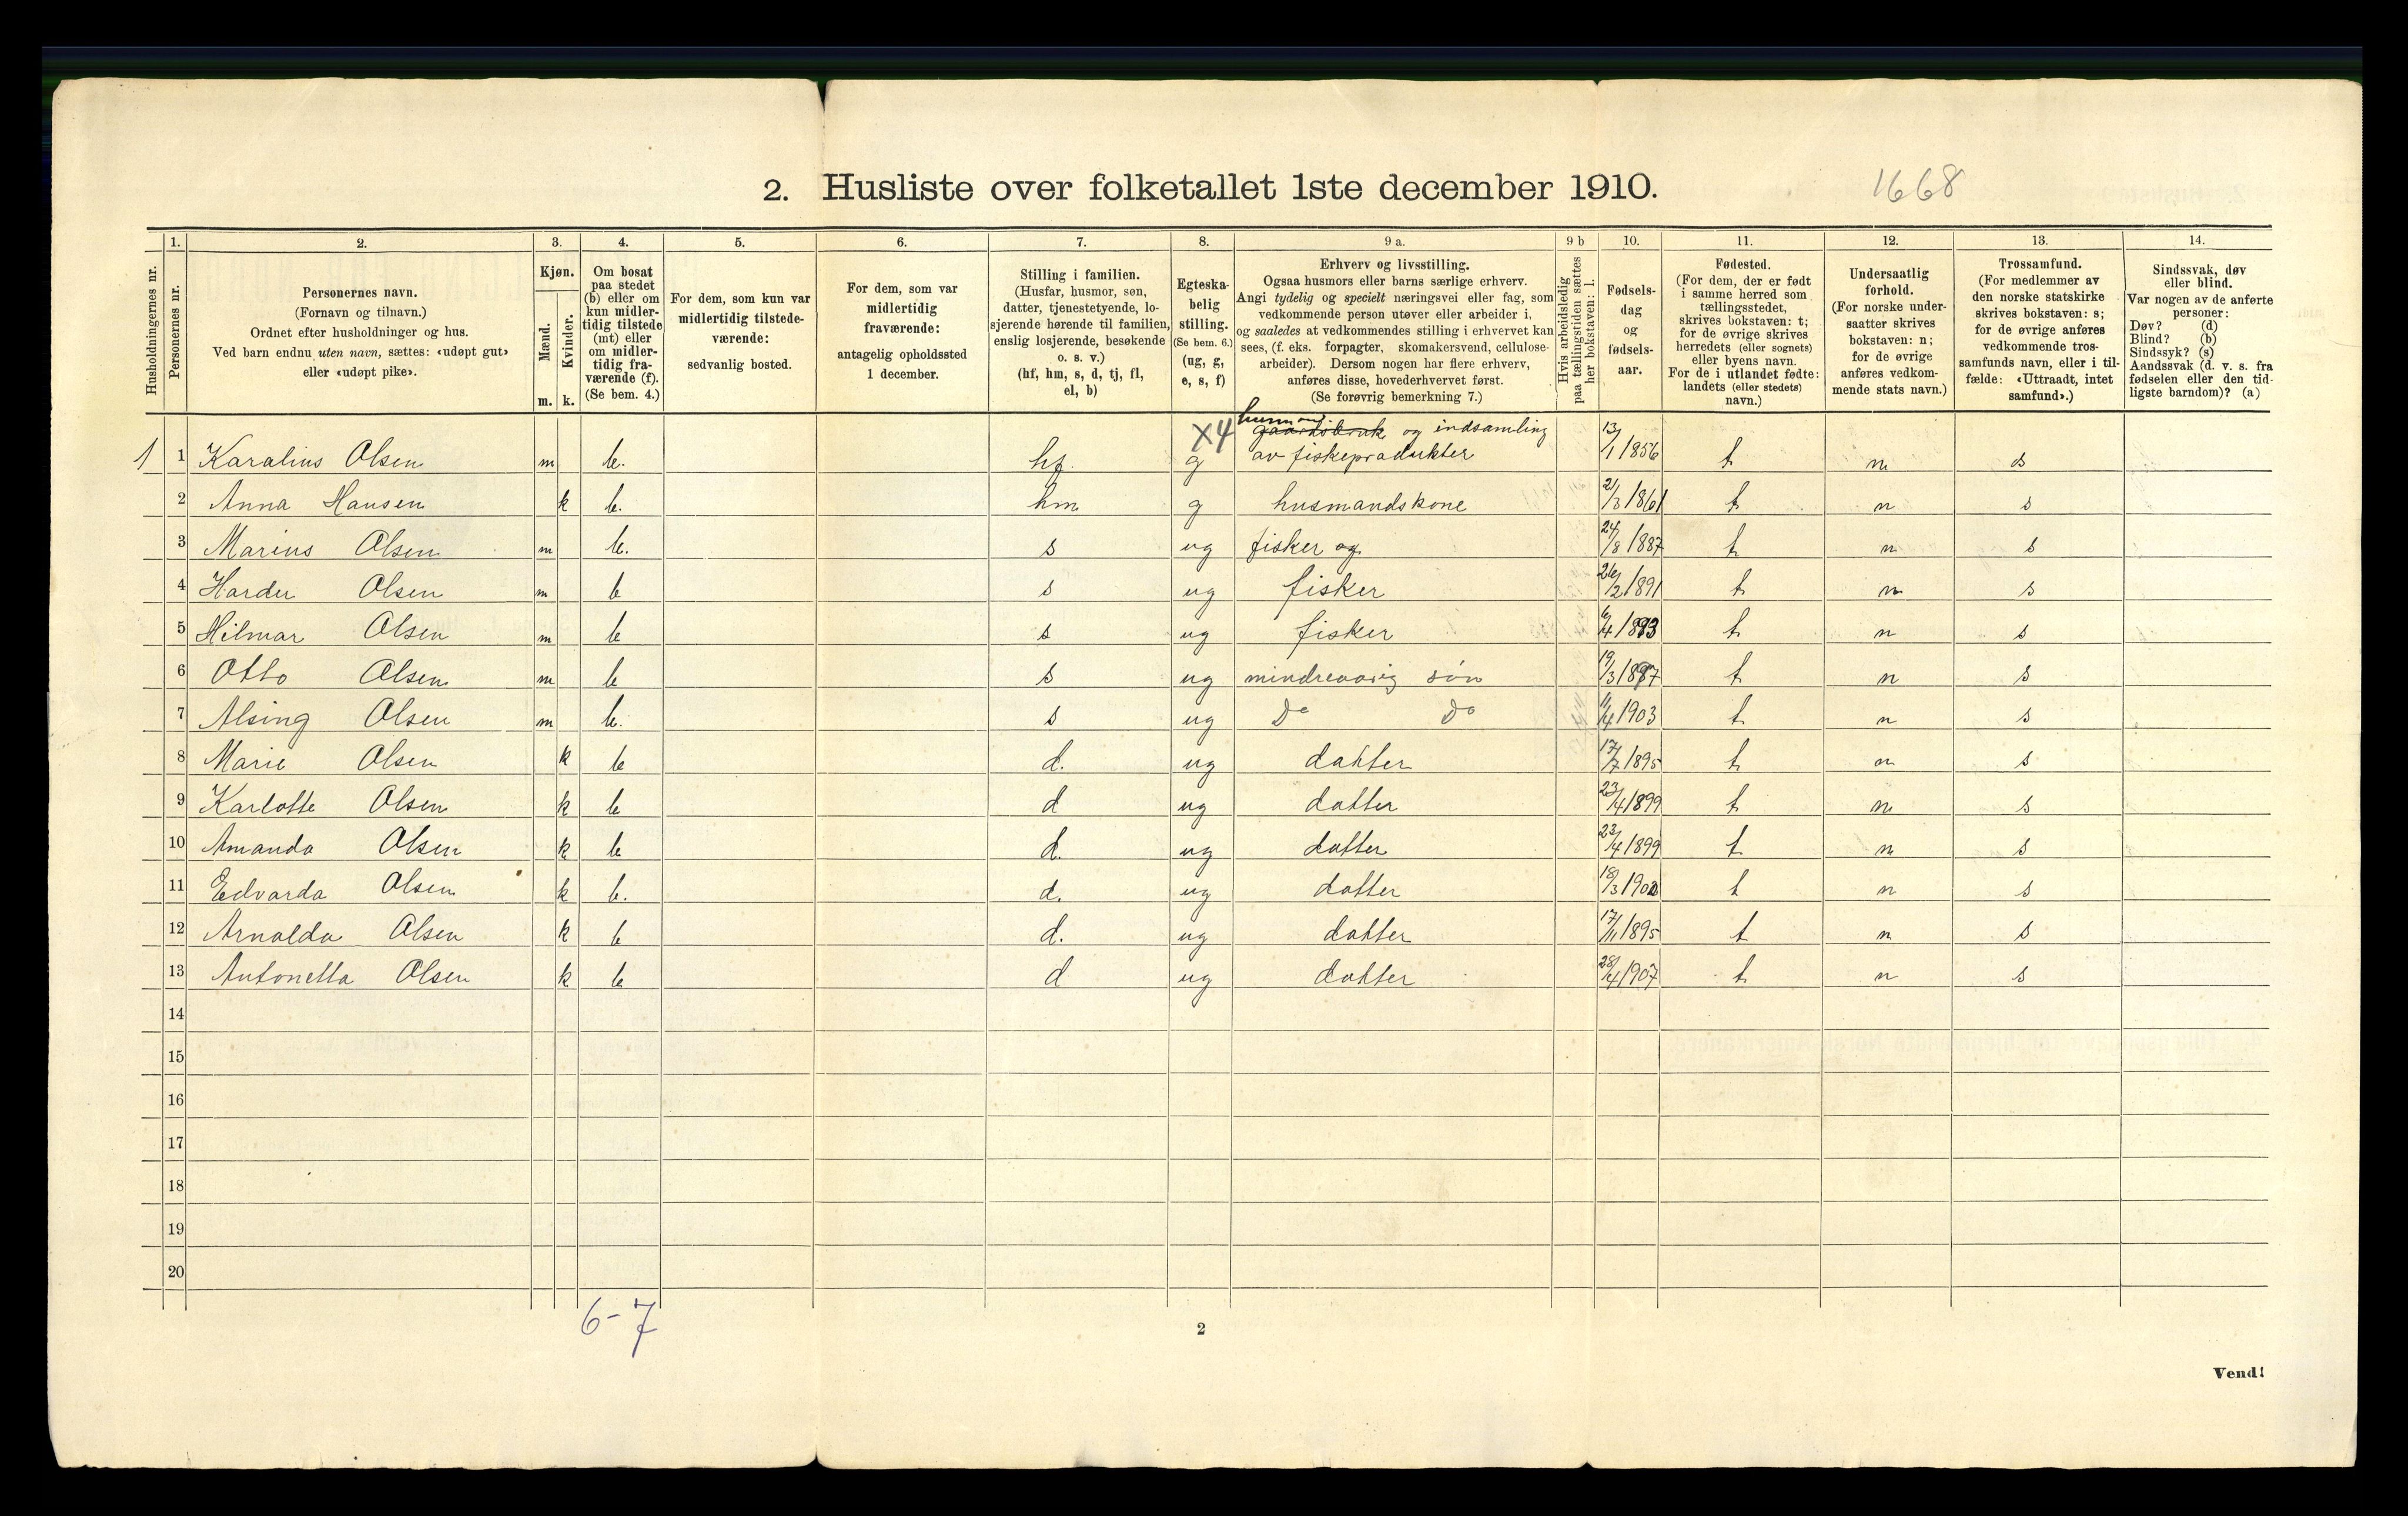 2. Husliste over folketallet 1ste december 1910.
1668
Husholdningernes nr.
1.
Personernes nr.
2.
Personernes navn.
(Fornavn og tilnavn.)
Ordnet efter husholdninger og hus.
Ved barn endnu uten navn, sættes: «udøpt gut»
eller «udøpt pike».
3.
Kjøn.
Mænd.
Kvinder.
m. k.
4.
Om bosat
paa stedet
(b) eller om
kun midler-
tidig tilstede
(mt) eller
om midler-
tidig fra-
værende (f).
(Se bem. 4.)
5.
For dem, som kun var
midlertidig tilstede-
værende:
sedvanlig bosted.
6.
For dem, som var
midlertidig
fraværende:
antagelig opholdssted
1 december.
7.
Stilling i familien.
(Husfar, husmor, søn,
datter, tjenestetyende, lo-
sjerende hørende til familien,
enslig losjerende, besøkende
o. s. v.)
(hf, hm, s, d, tj, fl,
el, b)
8.
Egteska-
belig
stilling.
(Se bem. 6.)
(ug, g,
e, s, f)
9 a.
Erhverv og livsstilling.
Ogsaa husmors eller barns særlige erhverv.
Angi tydelig og specielt næringsvei eller fag, som
vedkommende person utøver eller arbeider i,
og saaledes at vedkommendes stilling i erhvervet kan
sees, (f. eks. forpagter, skomakersvend, cellulose-
arbeider). Dersom nogen har flere erhverv,
anføres disse, hovederhvervet først.
(Se forøvrig bemerkning 7.)
9 b
Hvis arbeidsledig
paa tællingstiden sættes
her bokstaven: l.
10.
Fødsels-
dag
og
fødsels-
aar.
11.
Fødested.
(For dem, der er født
i samme herred som
tællingsstedet,
skrives bokstaven: t;
for de øvrige skrives
herredets (eller sognets)
eller byens navn.
For de i utlandet fødte:
landets (eller stedets)
navn.)
12.
Undersaatlig
forhold.
(For norske under-
saatter skrives
bokstaven: n;
for de øvrige
anføres vedkom-
mende stats navn.)
13.
Trossamfund.
(For medlemmer av
den norske statskirke
skrives bokstaven: s;
for de øvrige anføres
vedkommende tros-
samfunds navn, eller i til-
fælde: «Uttraadt, intet
samfund».)
14.
Sindssvak, døv
eller blind.
Var nogen av de anførte
personer:
Døv? (d)
Blind? (b)
Sindssyk? (s)
Aandssvak (d. v. s. fra
fødselen eller den tid-
ligste barndom)? (a)
X4 gaardsbruk og indsamling
1 1 Karalius Olsen m b. hf. g av fiskeprodukter 13/1 1856 t n s
2 Anna Hansen k b. hm g husmandskone 21/3 1861 t n s
3 Marius Olsen m b. s ug fisker og 24/8 1887 t n s
4 Harder Olsen m b s ug fisker 26/2 1891 t n s
5 Hilmar Olsen m b s ug fisker 6/4 1893 t n s
6 Otto Olsen m b s ug mindreaarig søn 19/3 1897 t n s
7 Alsing Olsen m b. s ug Do Do 11/4 1903 t n s
8 Marie Olsen k b d. ug datter 17/7 1895 t n s
9 Karlotte Olsen k b d ug datter 23/4 1899 t n s
10 Amanda Olsen k b d. ug datter 23/4 1899 t n s
11 Edvarda Olsen k b. d. ug datter 18/3 t n s
12 Arnalda Olsen k b d. ug datter 17/11 1895 t n s
13 Antonetta Olsen k b d ug datter 28/4 1907 t n s
14
15
16
17
18
19
20
6-7
2
Vend!